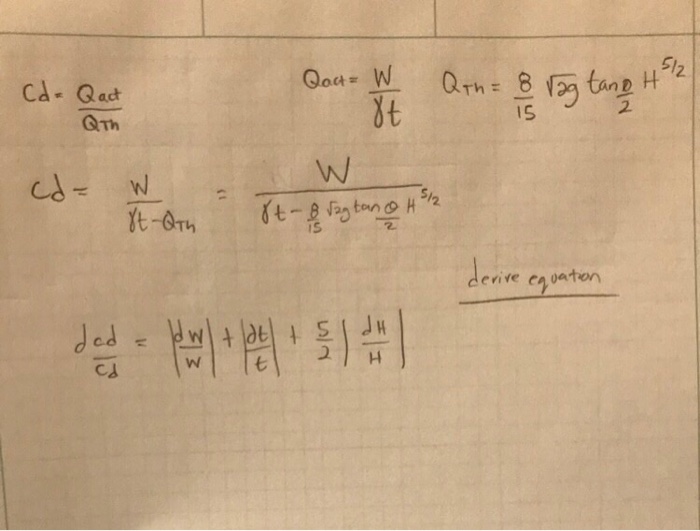 Cd = Qact/QTh    Qact = W/γt    QTh = 8/15 √2g tan θ/2 H^5/2
Cd = W/γt-QTh = W/γt - 8/15 √2g tan θ/2 H^5/2
derive equation
dcd/Cd = |dW/W| + |dt/t| + 5/2 |dH/H|